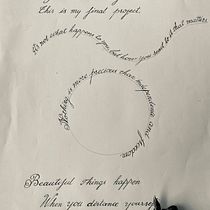 This is my final project.
It's not what happens to you, but how you react to it that matters.
Nothing is more precious than independence and freedom.
Beautiful things happen
When you distance yourself